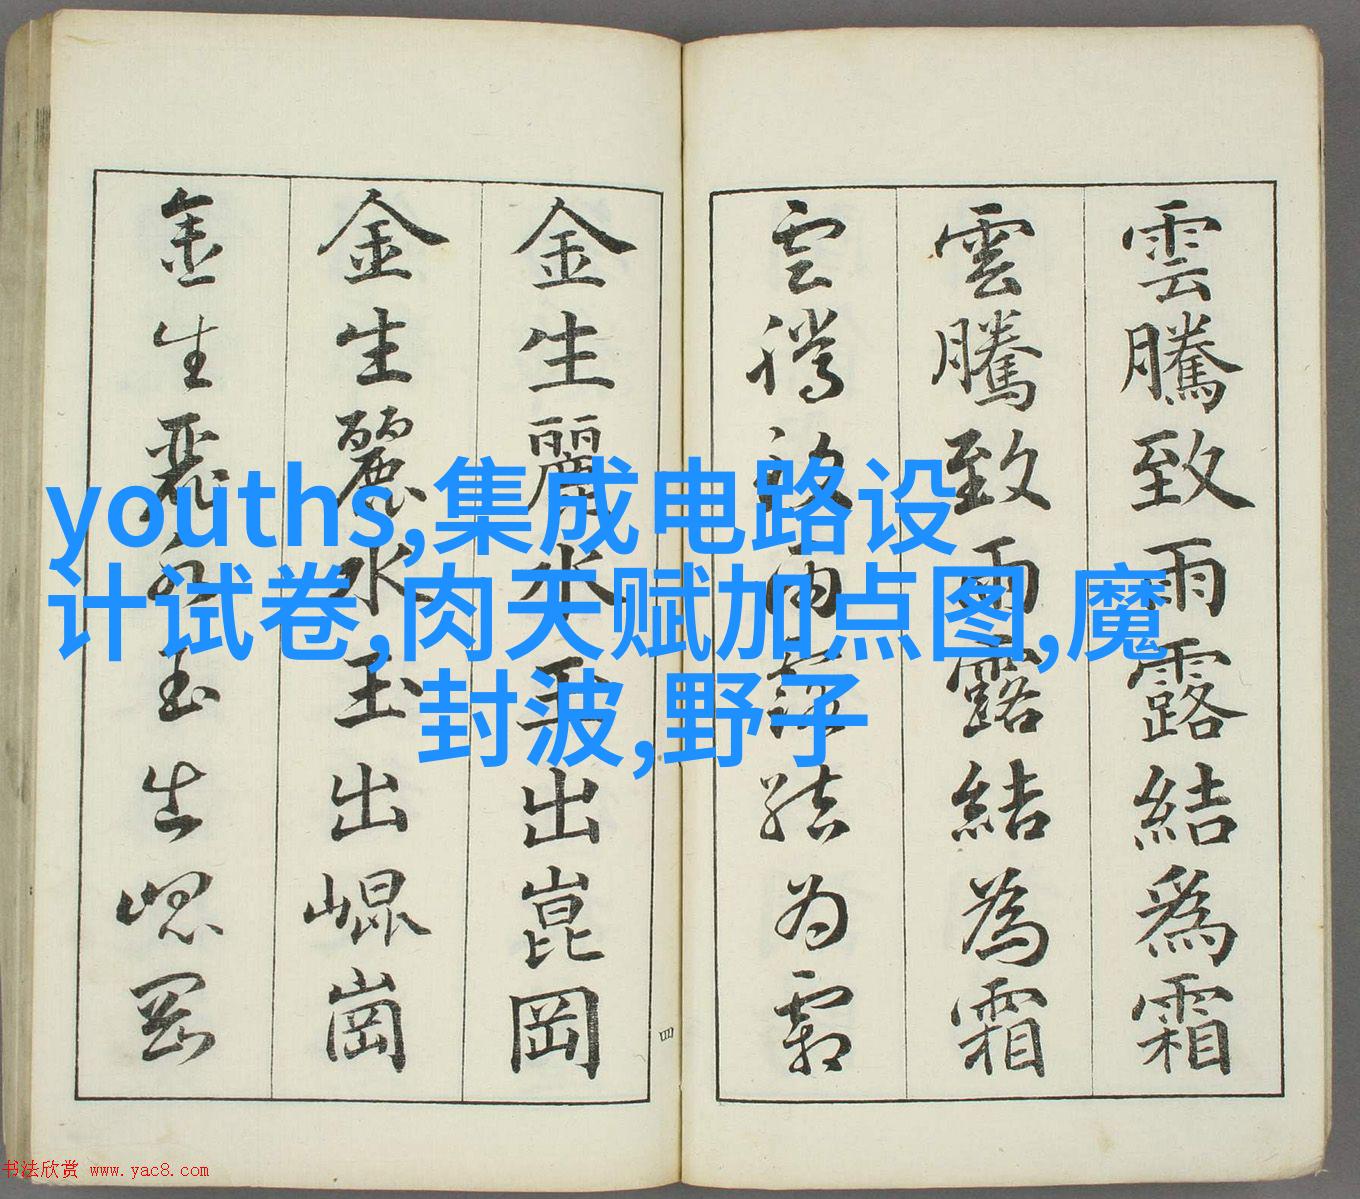 雲騰致雨露結爲霜
雲騰致雨露結為霜
雲騰致雨露结为霜
金生麗水玉出崑岡
金生麗水玉出崐崗
金生麗水玉出崐岡
四
youths,集成电路设
计试卷,肉天赋加点图,魔
封波,野子
书法欣赏 www.yac8.com